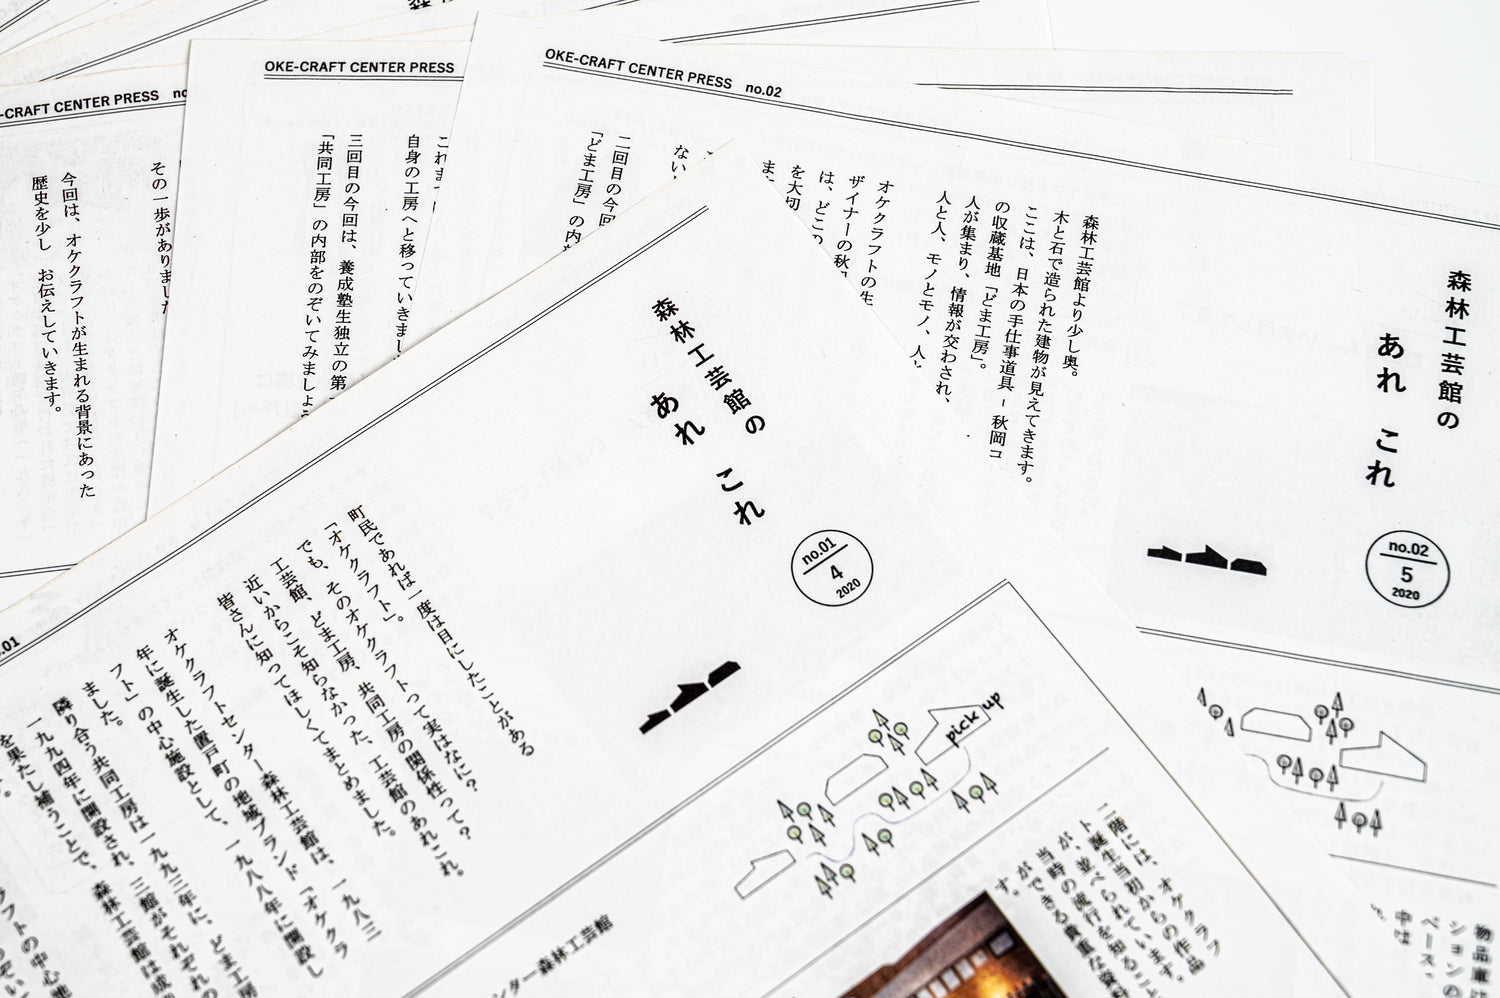 OKE-CRAFT CENTER PRESS
その一歩がありました
今回は、オケクラフトが生まれる背景にあった
歴史を少し お伝えしていきます。
OKE-CRAFT CENTER PRESS
自身の工房へと移っていきまし
三回目の今回は、養成塾生独立の第一
「共同工房」の内部をのぞいてみましょう
OKE-CRAFT CENTER PRESS no.02
森林工芸館の
あれ これ
no.02
5
2020
森林工芸館より少し奥。
木と石で造られた建物が見えてきます。
ここは、日本の手仕事道具-秋岡コ
の収蔵基地「どま工房」。
人が集まり、情報が交わされ、
人と人、モノとモノ、人と
オケクラフトの生
ザイナーの秋
は、どこの
を大切
ない
二回目の今回
「どま工房」の内
森林工芸館の
あれ これ
no.01
4
2020
町民であれば一度は目にしたことがある
「オケクラフト」。
でも、そのオケクラフトって実はなに?
工芸館、どま工房、共同工房の関係性って?
近いからこそ知らなかった、工芸館のあれこれ。
皆さんに知ってほしくてまとめました。
オケクラフトセンター森林工芸館は、一九八三
年に誕生した置戸町の地域ブランド「オケクラ
フト」の中心施設として、一九八八年に開設し
ました。
隣り合う共同工房は一九九三年に、どま工房
一九九四年に開設され、三館がそれぞれの
を果たし補うことで、森林工芸館は成
pick up
ンター森林工芸館
二階には、オケクラフ
ト誕生当初からの作品
が、並べられています。
当時の流行を知ること
ができる貴重な資料
です。
物品庫は
ションの
ベース・
中は